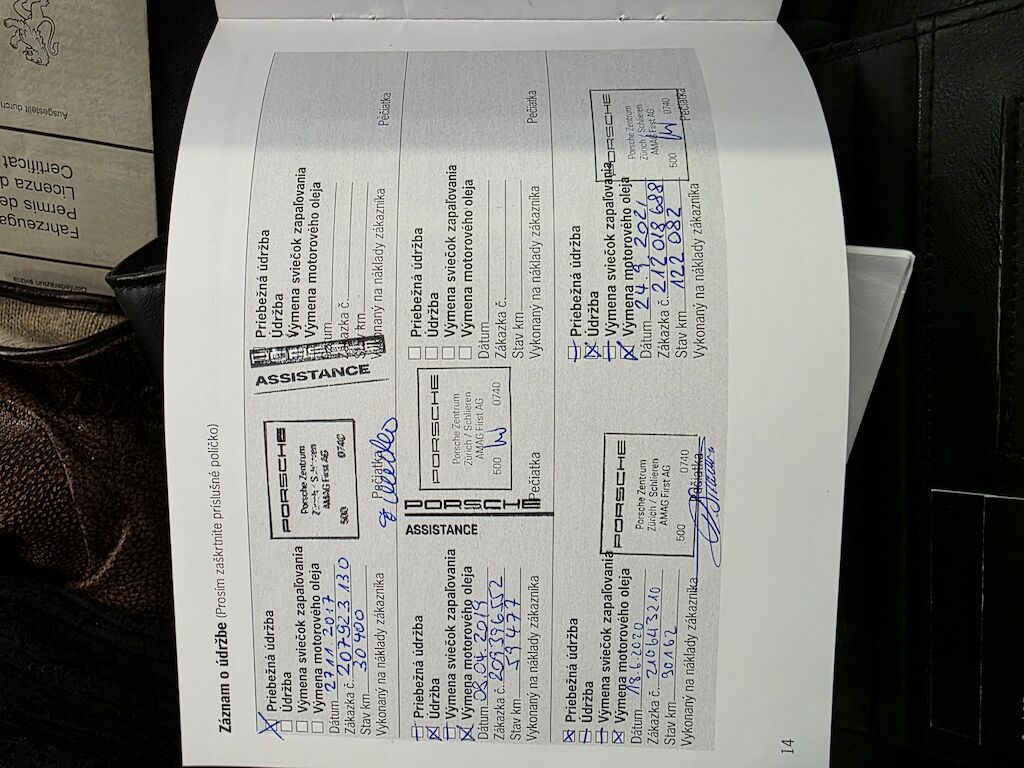 Záznam o údržbe (Prosím zaškrtnite príslušné políčko)
Priebežná údržba
Údržba
Výmena sviečok zapaľovania
Výmena motorového oleja
Dátum 27.11.2017
Zákazka č. 207923130
Stav km 30400
Vykonaný na náklady zákazníka
PORSCHE
Porsche Zentrum
AMAG First AG
500 0740
Pečiatka
ASSISTANCE
Priebežná údržba
Údržba
Výmena sviečok zapaľovania
Výmena motorového oleja
Vykonaný na náklady zákazníka
Pečiatka
Priebežná údržba
Údržba
Výmena sviečok zapaľovania
Výmena motorového oleja
Dátum 08.04.2019
Zákazka č. 209396552
Stav km 59477
Vykonaný na náklady zákazníka
PORSCHE
ASSISTANCE
PORSCHE
Porsche Zentrum
Zürich / Schlieren
AMAG First AG
500 0740
Pečiatka
Priebežná údržba
Údržba
Výmena sviečok zapaľovania
Výmena motorového oleja
Dátum
Zákazka č.
Stav km
Vykonaný na náklady zákazníka
Pečiatka
Priebežná údržba
Údržba
Výmena sviečok zapaľovania
Výmena motorového oleja
Dátum 18.6.2020
Zákazka č. 210643210
Stav km 90162
Vykonaný na náklady zákazníka
PORSCHE
Porsche Zentrum
Zürich / Schlieren
AMAG First AG
500 0740
Pečiatka
Priebežná údržba
Údržba
Výmena sviečok zapaľovania
Výmena motorového oleja
Dátum 24.9.2021
Zákazka č. 212018688
Stav km 122 082
Vykonaný na náklady zákazníka
PORSCHE
Porsche Zentrum
Zürich / Schlieren
AMAG First AG
500 0740
Pečiatka
14
Ausgestellt durch
Fahrzeuga
Permis de
Licenza d
Certificat